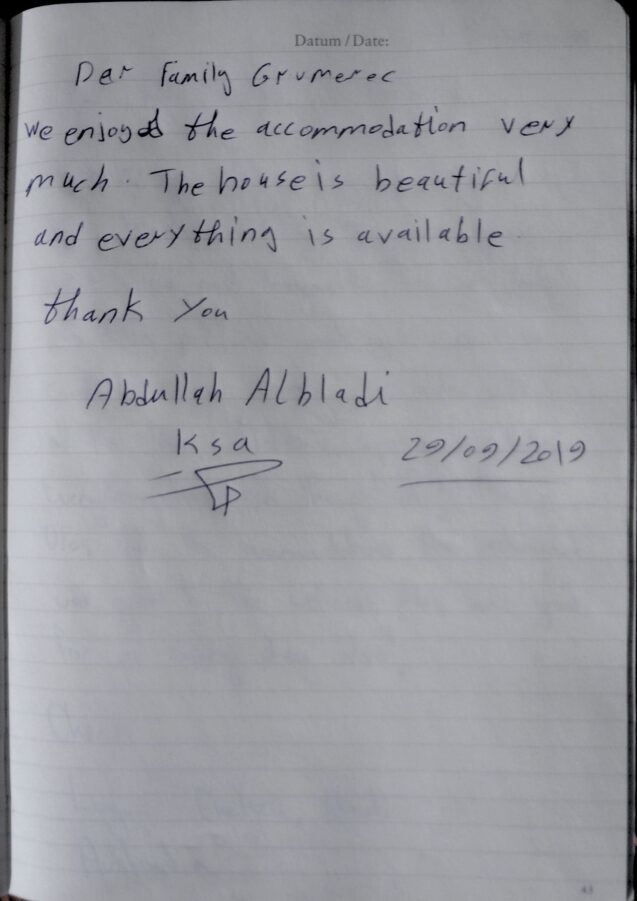 Datum / Date:
Der Family Grumerec
We enjoyed the accommodation very
much. The house is beautiful
and everything is available
thank you
Abdullah Albladi
Ksa
29/09/2019
43